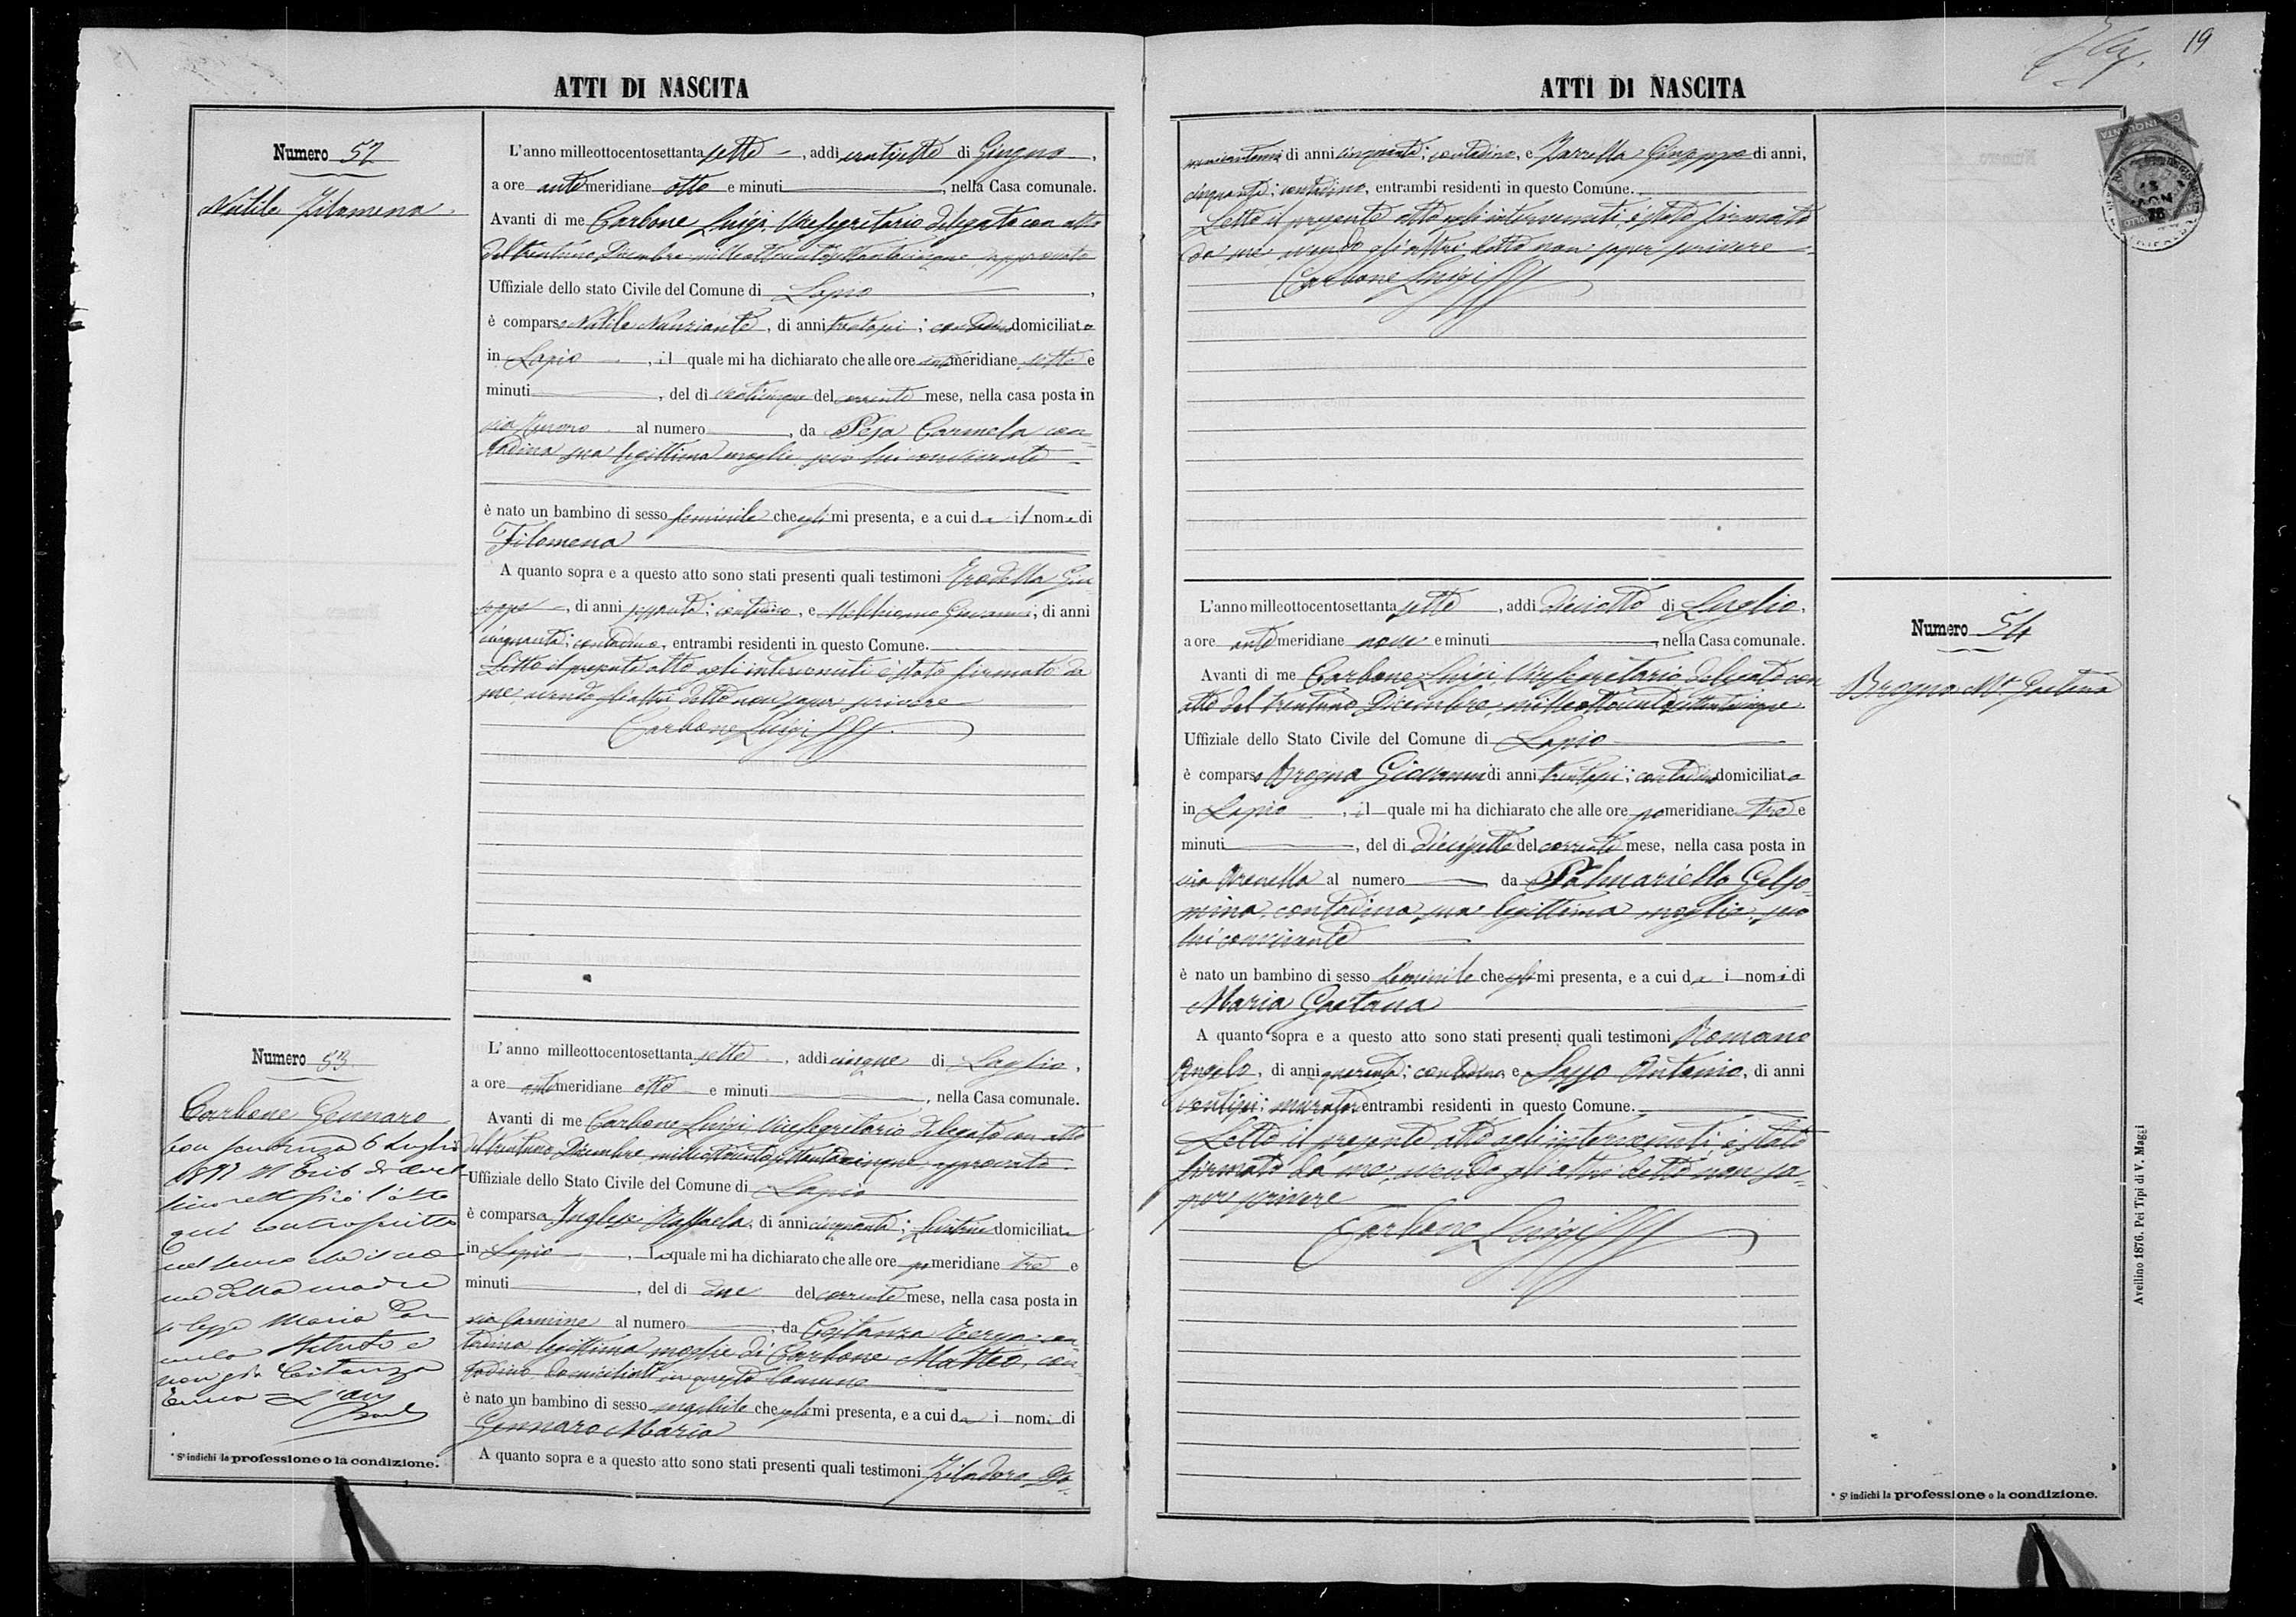 19
ATTI DI NASCITA
Numero 52
Natile Filomena
L'anno milleottocentosettanta sette, addi ventisette di Giugno,
a ore antemeridiane otto e minuti, nella Casa comunale.
Avanti di me Carbone Luigi, Vicesegretario delegato con atto
del trentuno Dicembre milleottocentosettantacinque, approvato
Uffiziale dello stato Civile del Comune di Lapio,
è comparso Natile Nunziante, di anni trentasei; contadino domiciliato
in Lapio, il quale mi ha dichiarato che alle ore antemeridiane sette e
minuti, del di venticinque del corrente mese, nella casa posta in
via al numero, da Pesa Carmela con=
tadina sua legittima moglie, seco lui convivente
è nato un bambino di sesso feminile che egli mi presenta, e a cui da il nome di
Filomena
A quanto sopra e a questo atto sono stati presenti quali testimoni Giu
seppe, di anni sessanta; contadino, e Giovanni, di anni
cinquanta; contadino, entrambi residenti in questo Comune.
Letto il presente atto agli intervenuti è stato firmato da
me, avendo gli altri detto non saper scrivere
Carbone Luigi
Numero 53
Carbone Gennaro
Con sentenza 6 Luglio
1897 il Trib di Avel=
lino rettificò l'atto
qui controscritto
nel senso che il no=
me della madre
si legga Maria Car
mela e
non già Costanza
L'anno milleottocentosettanta sette, addi cinque di Luglio,
a ore antemeridiane otto e minuti, nella Casa comunale.
Avanti di me Carbone Luigi Vicesegretario delegato con atto
del trentuno Dicembre milleottocentosettantacinque, approvato
Uffiziale dello Stato Civile del Comune di Lapio
è comparsa Inglese Raffaela, di anni cinquanta; levatrice domiciliata
in Lapio, La quale mi ha dichiarato che alle ore pomeridiane tre e
minuti, del di due del corrente mese, nella casa posta in
via Carmine al numero, da Costanza con=
tadina legittima moglie di Carbone Matteo, con=
tadino domiciliati in questo Comune
è nato un bambino di sesso maschile che mi presenta, e a cui da i nomi di
Gennaro Maria
A quanto sopra e a questo atto sono stati presenti quali testimoni Filadoro
* Si indichi la professione o la condizione.
ATTI DI NASCITA
di anni cinquanta; contadino, e Zarrella Giuseppe di anni,
cinquanta; contadino, entrambi residenti in questo Comune.
Letto il presente atto agli intervenuti, è stato firmato
da me, avendo gli altri detto non saper scrivere
Carbone Luigi
L'anno milleottocentosettanta sette, addi dieciotto di Luglio,
a ore antemeridiane nove e minuti, nella Casa comunale.
Avanti di me Carbone Luigi, Vicesegretario delegato con
atto del trentuno Dicembre, milleottocentosettantacinque
Uffiziale dello Stato Civile del Comune di Lapio
è comparso Brogna Giovanni di anni trentasei; contadino domiciliato
in Lapio, il quale mi ha dichiarato che alle ore pomeridiane tre e
minuti, del di diecisette del corrente mese, nella casa posta in
via al numero da Palmariello Gelso=
mina contadina sua legittima moglie, seco
lui convivente
è nato un bambino di sesso feminile che egli mi presenta, e a cui da i nomi di
Maria Gaetana
A quanto sopra e a questo atto sono stati presenti quali testimoni Romano
Angelo, di anni quaranta; contadino e Antonio, di anni
ventisei; muratore entrambi residenti in questo Comune.
Letto il presente atto agli intervenuti, è stato
firmato da me, avendo gli altri detto non sa=
pere scrivere
Carbone Luigi
Numero 54
Brogna Mª Gaetana
Avellino 1876. Pei Tipi di V. Maggi
* Si indichi la professione o la condizione.